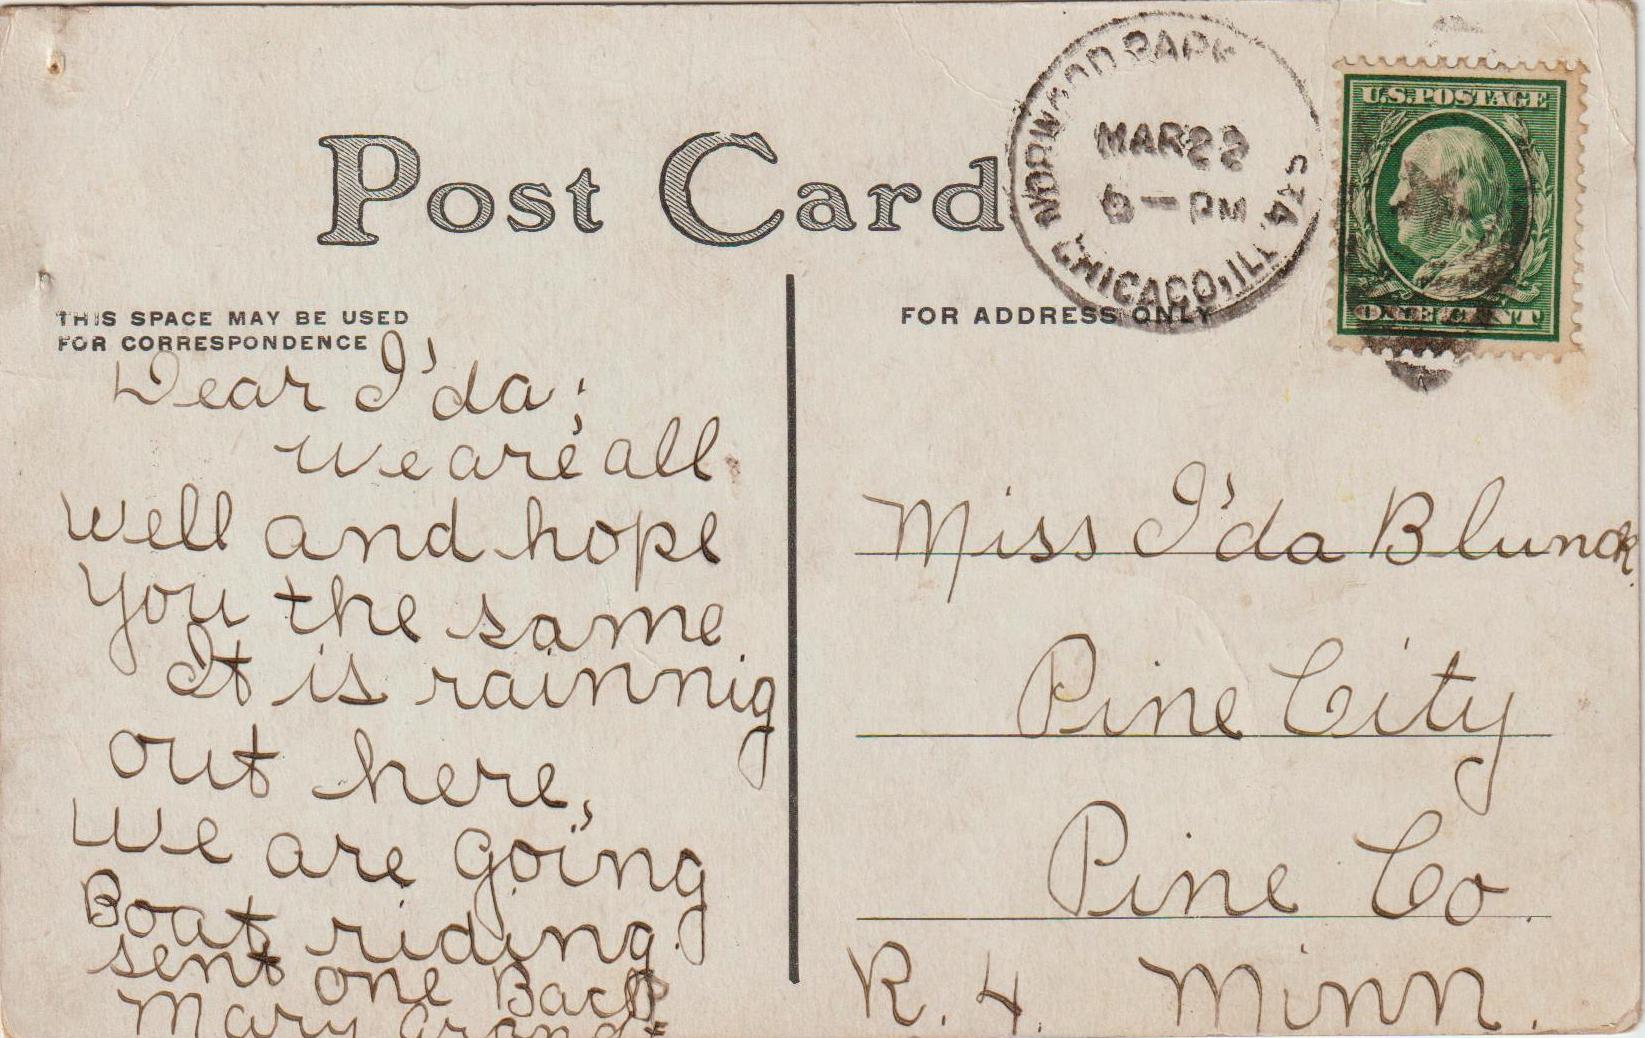 Post Card
NORWOOD PARK STA.
MAR 22
6 - PM
CHICAGO, ILL.
U.S. POSTAGE
ONE CENT
THIS SPACE MAY BE USED
FOR CORRESPONDENCE
FOR ADDRESS ONLY
Dear I'da;
we are all
well and hope
you the same
It is rainnig
out here,
We are going
Boat riding.
sent one Back
Mary
Miss I'da Blunck.
Pine City
Pine Co.
R. 4. Minn.